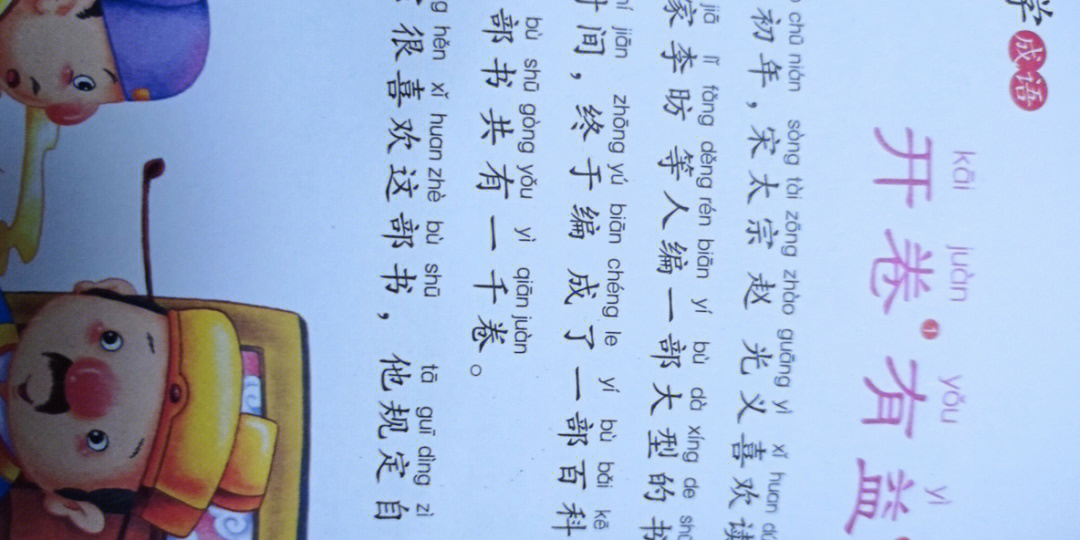 学成语
kāi juàn yǒu yì
开卷①有益
chū nián sòng tài zōng zhào guāng yì xǐ huan
初年，宋太宗赵光义喜欢读
jiā lǐ fǎng děng rén biān yí bù dà xíng de
家李昉等人编一部大型的书
jiān zhōng yú biān chéng le yí bù bǎi kē
时间，终于编成了一部百科
bù shū gòng yǒu yì qiān juàn
部书共有一千卷。
hěn xǐ huan zhè bù shū tā guī dìng zì
很喜欢这部书，他规定自